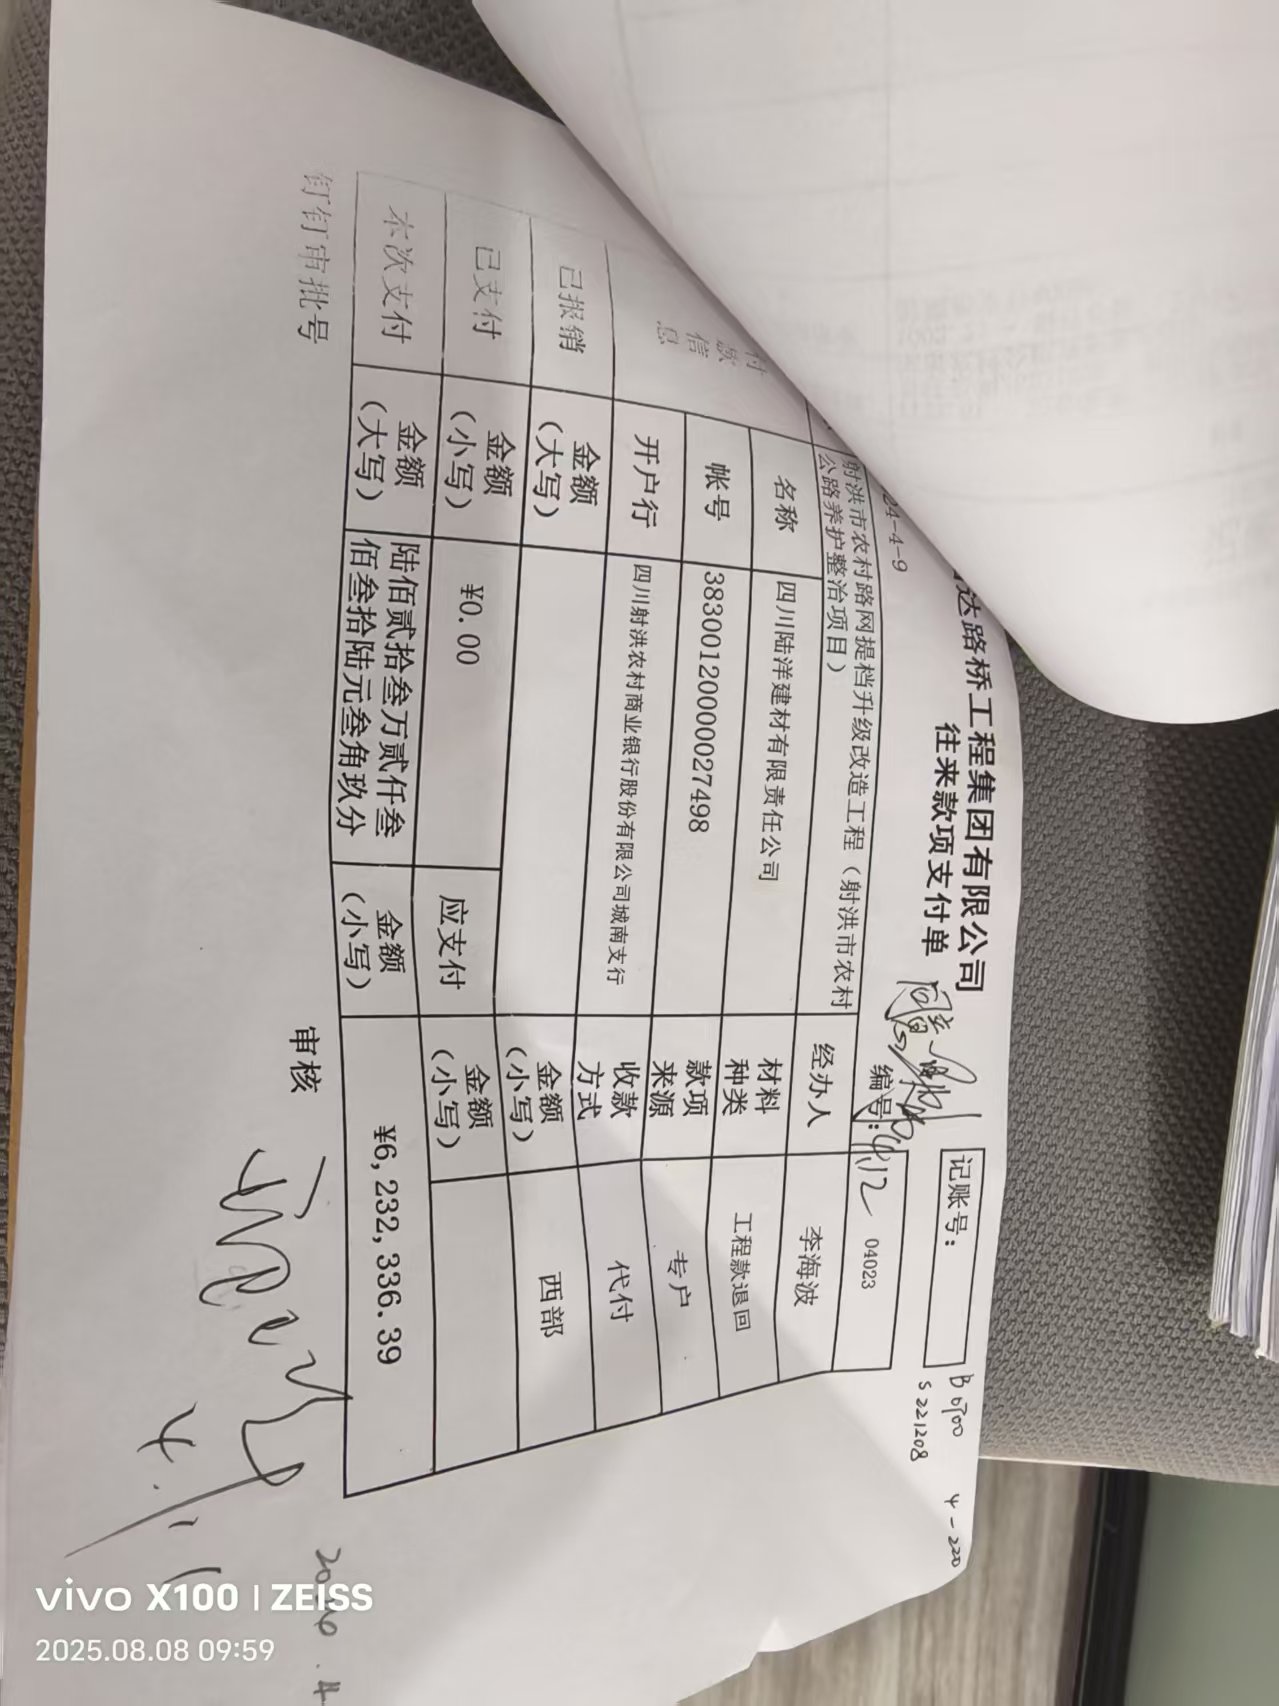 达路桥工程集团有限公司
往来款项支付单
记账号：
B 0700
4-220
S 221208
24-4-9
编号：
04023
射洪市农村路网提档升级改造工程（射洪市农村公路养护整治项目）
经办人
李海波
付款信息
名称
四川陆洋建材有限责任公司
材料种类
工程款退回
帐号
38300120000027498
款项来源
专户
开户行
四川射洪农村商业银行股份有限公司城南支行
收款方式
代付
已报销
金额（大写）
金额（小写）
西部
已支付
金额（小写）
¥0.00
应支付
金额（小写）
本次支付
金额（大写）
陆佰贰拾叁万贰仟叁佰叁拾陆元叁角玖分
金额（小写）
¥6,232,336.39
钉钉审批号
审核
vivo X100 | ZEISS
2025.08.08 09:59